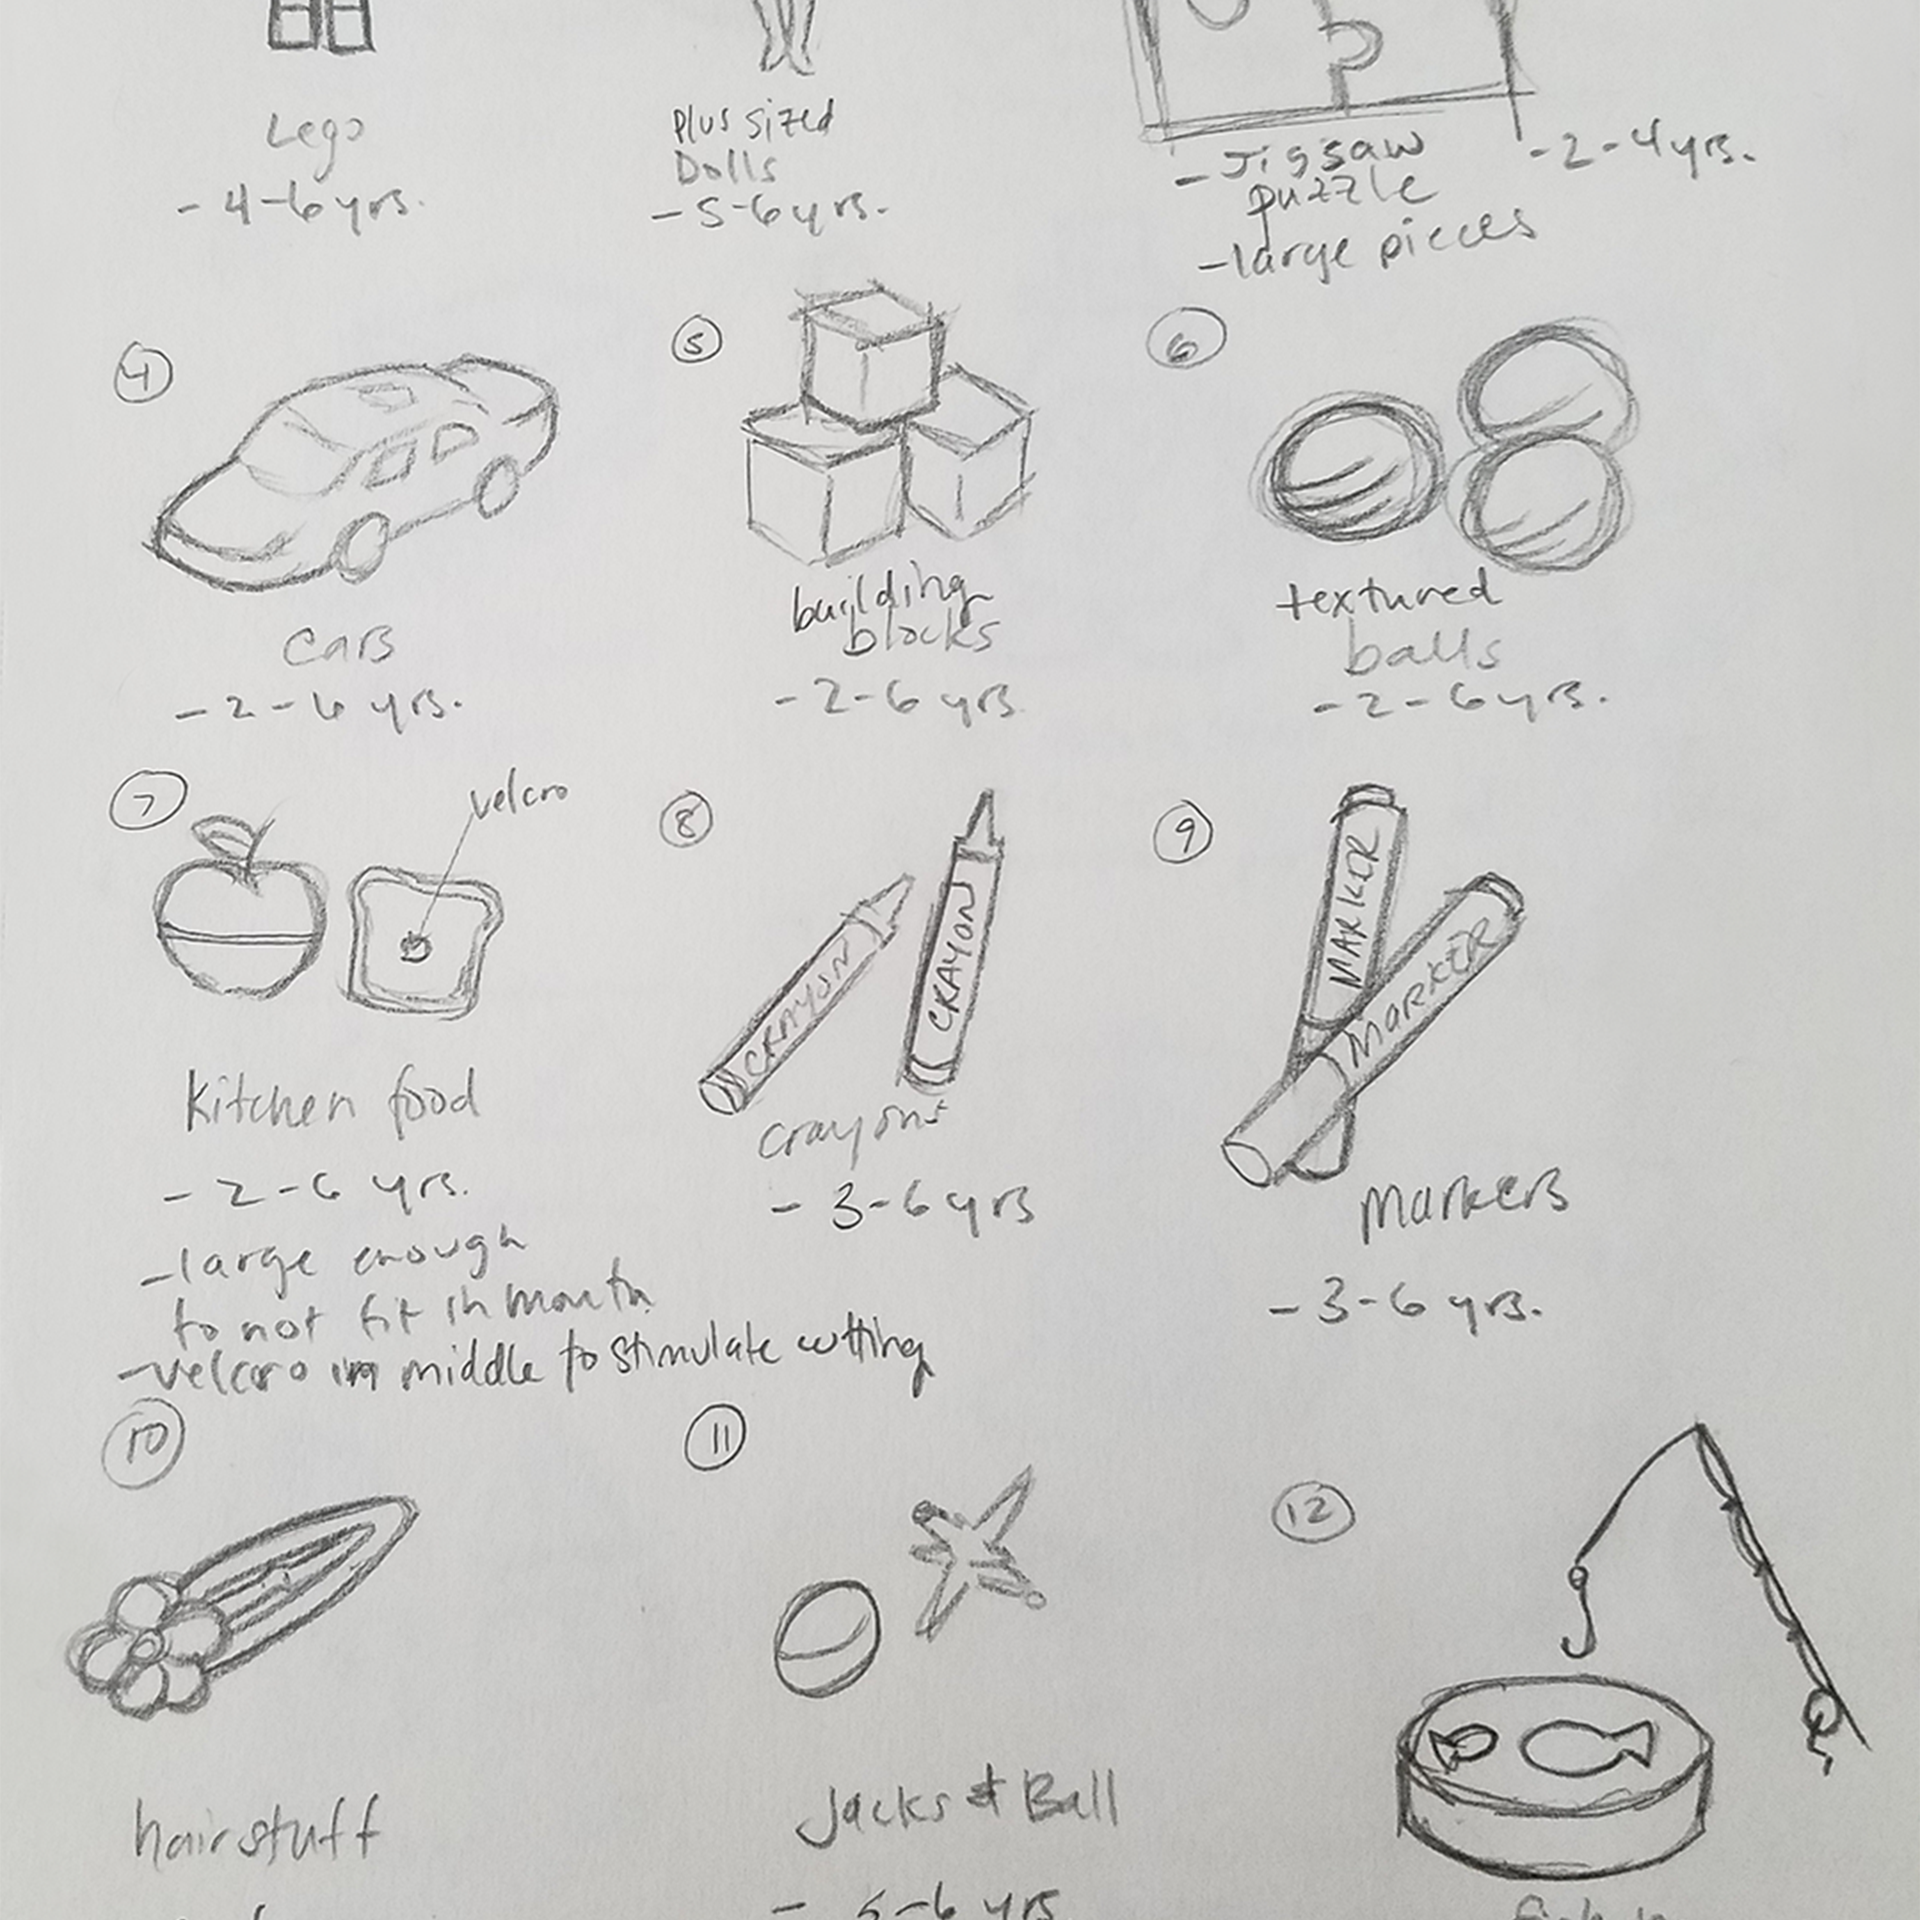 Lego
- 4-6 yrs.
Plus sized
Dolls
- 5-6 yrs.
- Jigsaw
puzzle
- large pieces
- 2-4 yrs.
4
cars
- 2-6 yrs.
5
building
blocks
- 2-6 yrs
6
textured
balls
- 2-6 yrs.
7
velcro
kitchen food
- 2-6 yrs.
- large enough
to not fit in mouth
- velcro in middle to stimulate cutting
8
CRAYON
CRAYON
crayons
- 3-6 yrs
9
MARKER
MARKER
Markers
- 3-6 yrs.
10
hairstuff
11
Jacks & Ball
- 5-6 yrs
12